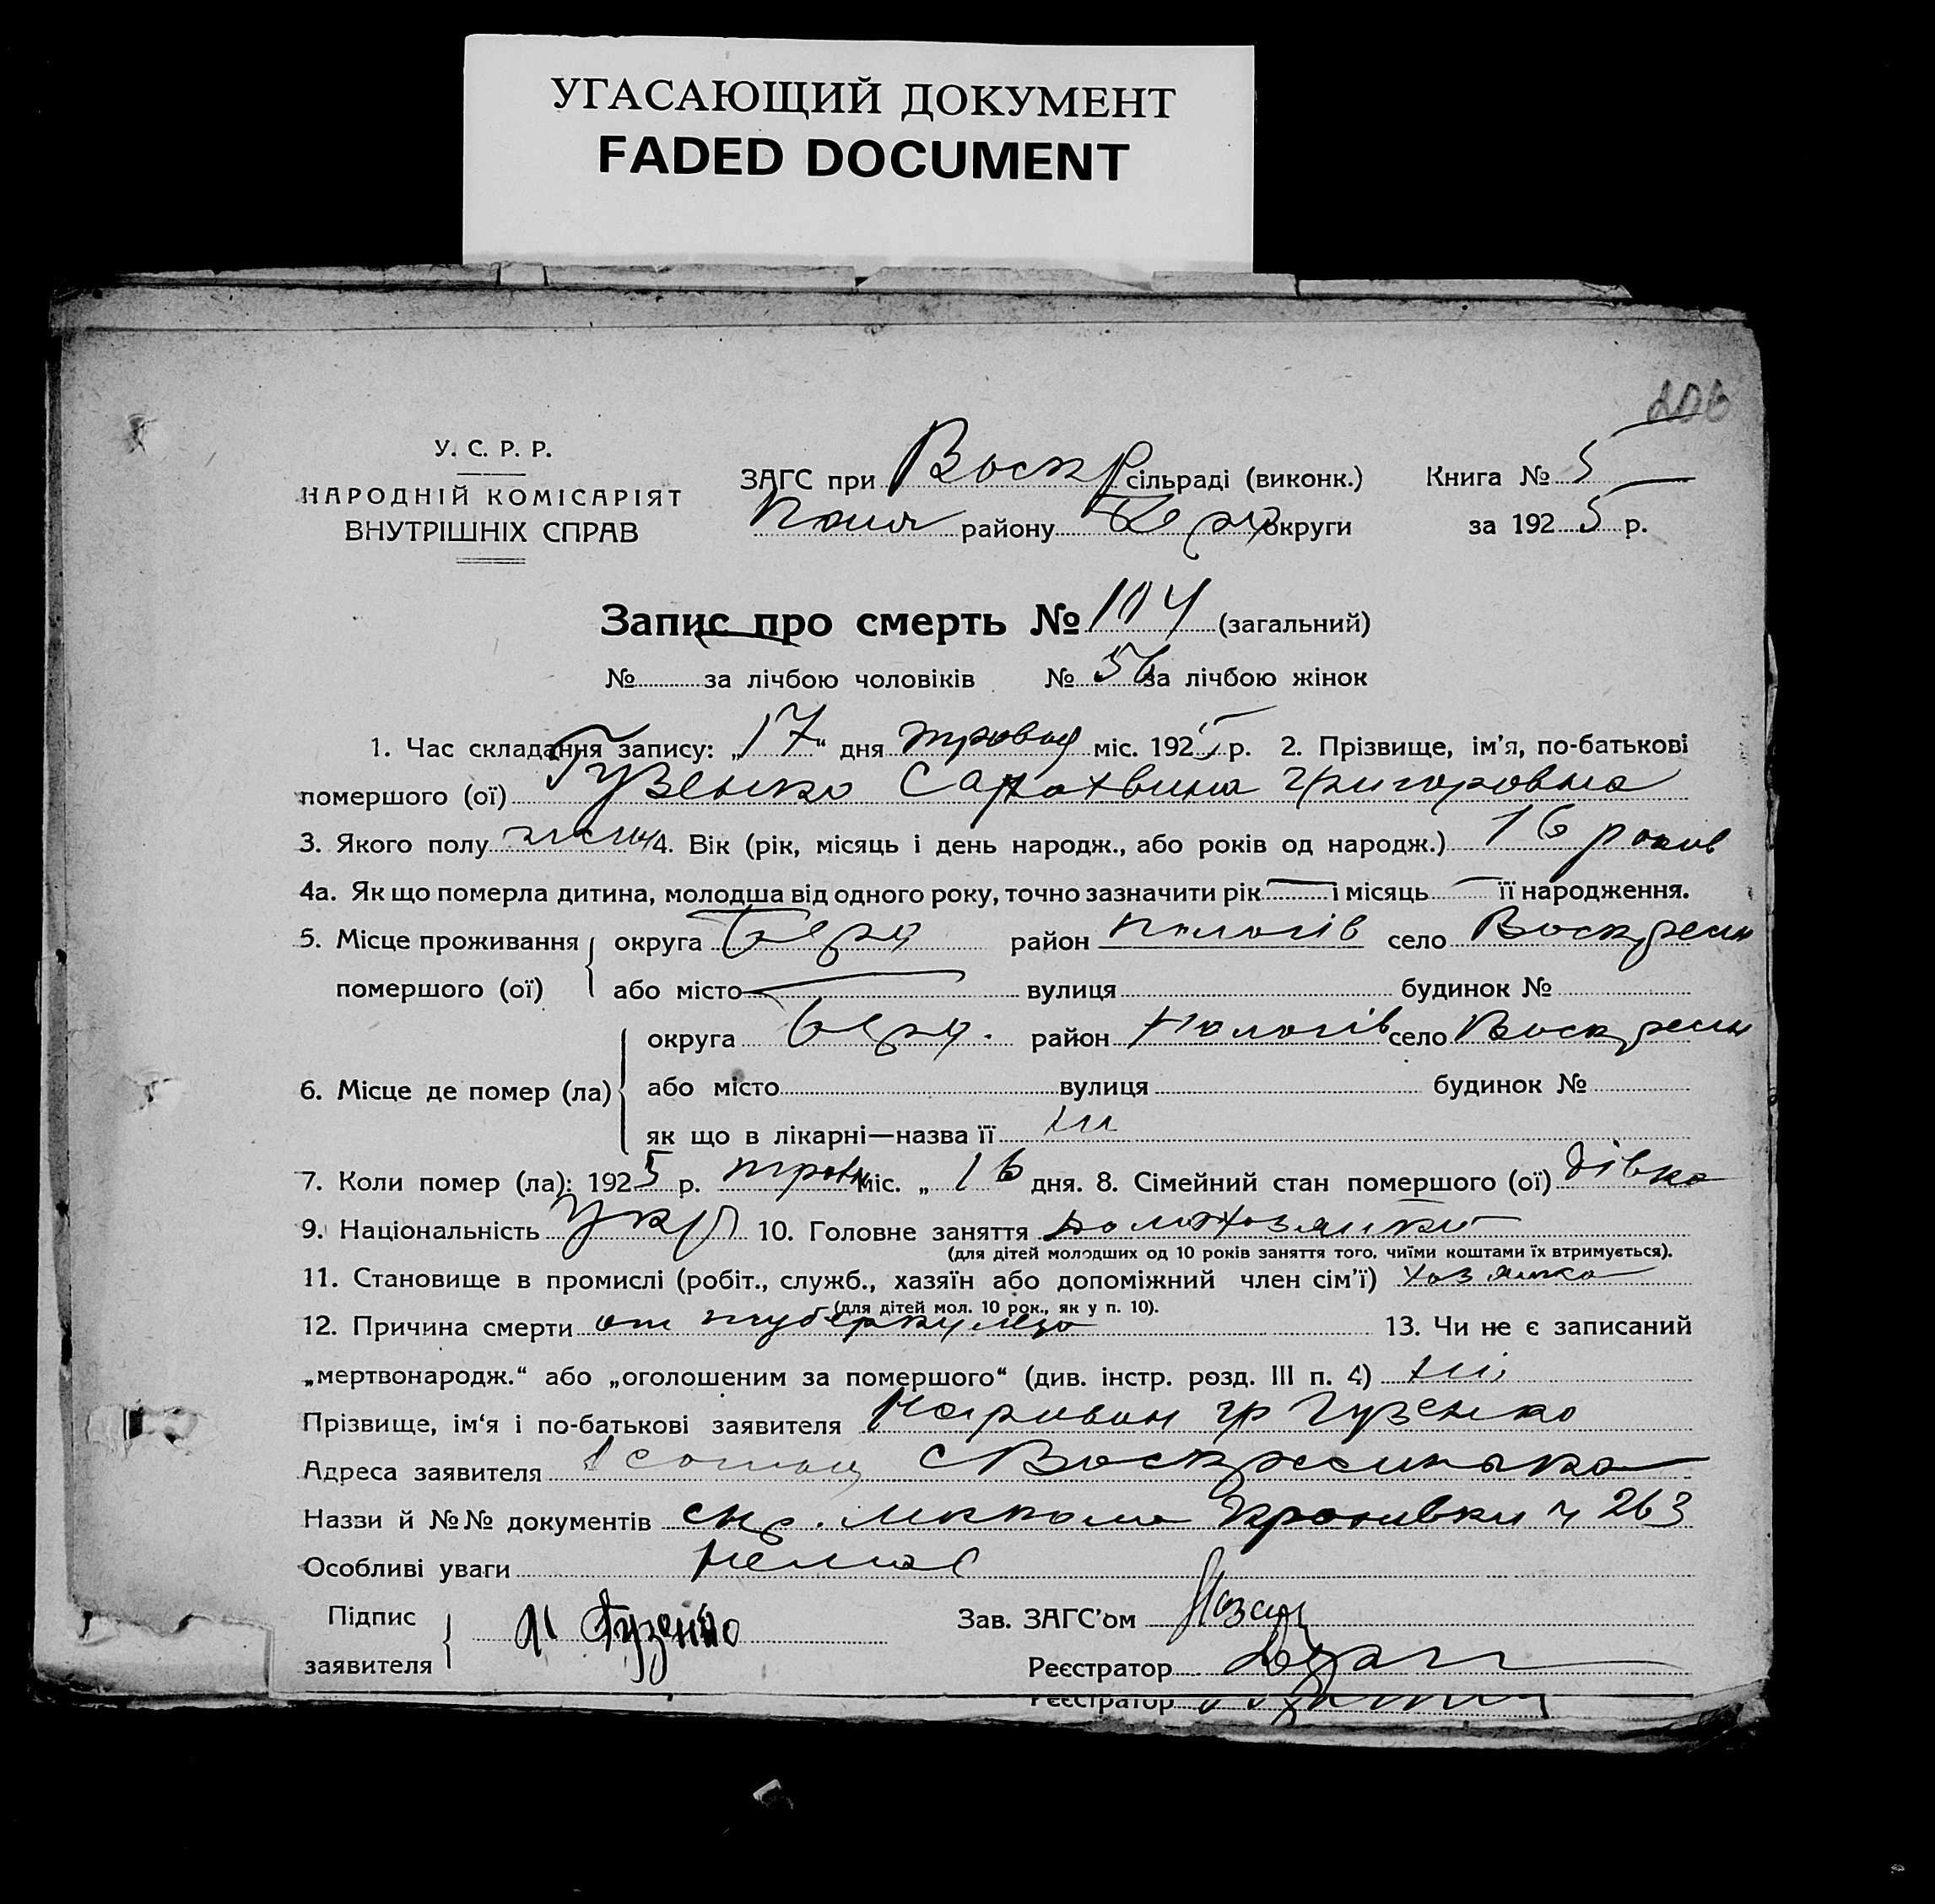 УГАСАЮЩИЙ ДОКУМЕНТ
FADED DOCUMENT
У. С. Р. Р.
НАРОДНІЙ КОМІСАРІЯТ
ВНУТРІШНІХ СПРАВ
ЗАГС при Воскр сільраді (виконк.)
району округи
Книга № 5
за 1925 р.
Запис про смерть № 104 (загальний)
№ за лічбою чоловіків № 56 за лічбою жінок
1. Час складання запису: „17“ дня травня міс. 1925 р. 2. Прізвище, ім'я, по-батькові
помершого (ої) Гузенко Григоровна
3. Якого полу жіноч 4. Вік (рік, місяць і день народж., або років од народж.) 16 років
4а. Як що померла дитина, молодша від одного року, точно зазначити рік і місяць її народження.
5. Місце проживання помершого (ої) округа Берд район Пологів село Воскресен
або місто вулиця будинок №
6. Місце де помер (ла) округа Берд. район Пологів село Воскресен
або місто вулиця будинок №
як що в лікарні—назва її ні
7. Коли помер (ла): 1925 р. травн міс. „16 дня. 8. Сімейний стан помершого (ої) дівка
9. Національність укр 10. Головне заняття
(для дітей молодших од 10 років заняття того, чиїми коштами їх втримується).
11. Становище в промислі (робіт., служб., хазяїн або допоміжний член сім'ї) хозяйка
(для дітей мол. 10 рок., як у п. 10).
12. Причина смерти от туберкульоза 13. Чи не є записаний
„мертвонародж.“ або „оголошеним за помершого“ (див. інстр. розд. III п. 4) ні
Прізвище, ім'я і по-батькові заявителя гр Гузенко
Адреса заявителя 1 сотня с Воскресенька
Назви й №№ документів 263
Особливі уваги немає
Підпис заявителя Гузенко
Зав. ЗАГС'ом
Реєстратор
Реєстратор